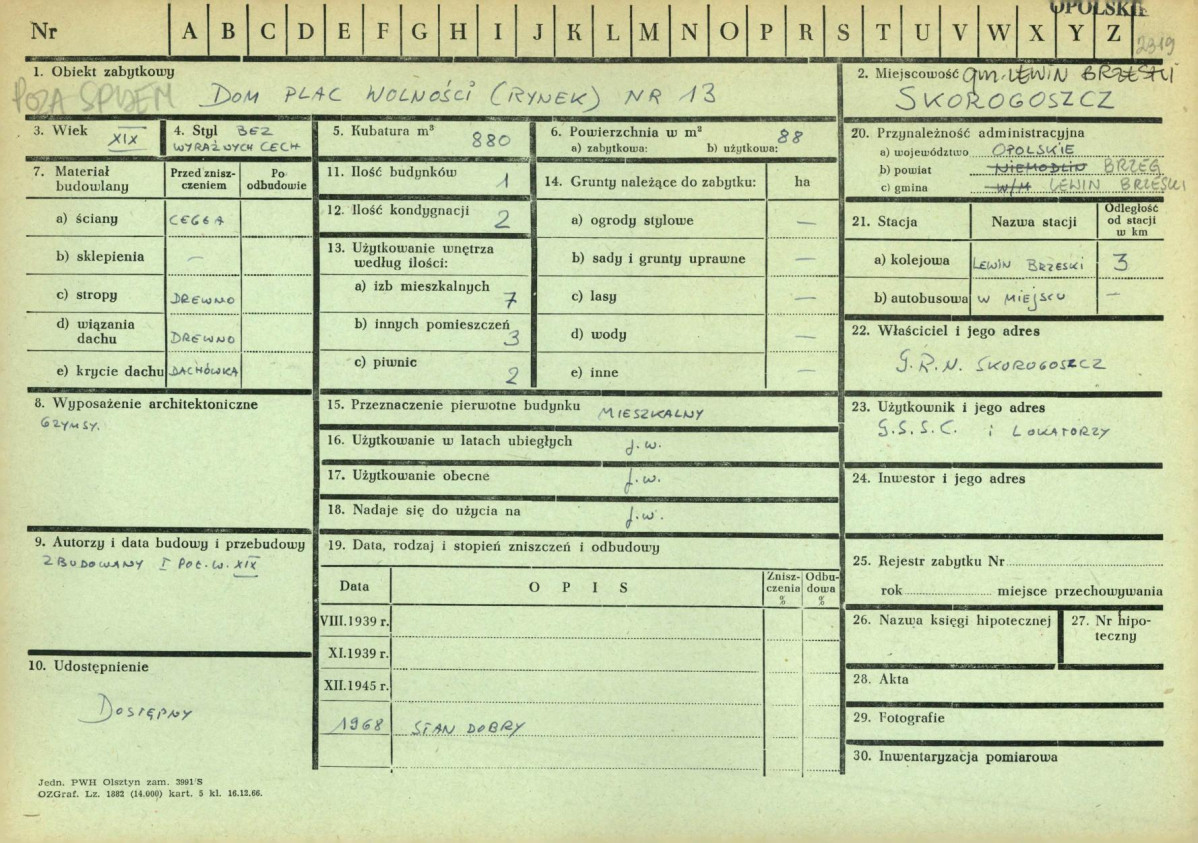 OPOLSKIE
Nr A B C D E F G H I J K L M N O P R S T U V W X Y Z
2319
1. Obiekt zabytkowy
POZA SPISEM
DOM PLAC WOLNOŚCI (RYNEK) NR 13
2. Miejscowość gm. LEWIN BRZESKI
SKOROGOSZCZ
3. Wiek XIX
4. Styl BEZ
WYRAŹNYCH CECH
5. Kubatura m³ 880
6. Powierzchnia w m² 88
a) zabytkowa: b) użytkowa:
7. Materiał budowlany
Przed zniszczeniem
Po odbudowie
a) ściany CEGŁA
b) sklepienia —
c) stropy DREWNO
d) wiązania dachu DREWNO
e) krycie dachu DACHÓWKA
8. Wyposażenie architektoniczne
GZYMSY.
9. Autorzy i data budowy i przebudowy
ZBUDOWANY I POŁ. W. XIX
10. Udostępnienie
DOSTĘPNY
11. Ilość budynków 1
12. Ilość kondygnacji 2
13. Użytkowanie wnętrza
według ilości:
a) izb mieszkalnych 7
b) innych pomieszczeń 3
c) piwnic 2
14. Grunty należące do zabytku: ha
a) ogrody stylowe —
b) sady i grunty uprawne —
c) lasy —
d) wody —
e) inne —
15. Przeznaczenie pierwotne budynku MIESZKALNY
16. Użytkowanie w latach ubiegłych j.w.
17. Użytkowanie obecne j.w.
18. Nadaje się do użycia na j.w.
19. Data, rodzaj i stopień zniszczeń i odbudowy
Data OPIS Zniszczenia % Odbudowa %
VIII.1939 r.
XI.1939 r.
XII.1945 r.
1968 STAN DOBRY
20. Przynależność administracyjna
a) województwo OPOLSKIE
b) powiat NIEMODLIN BRZEG
c) gmina W/M LEWIN BRZESKI
21. Stacja Nazwa stacji Odległość od stacji w km
a) kolejowa LEWIN BRZESKI 3
b) autobusowa W MIEJSCU —
22. Właściciel i jego adres
G.R.N. SKOROGOSZCZ
23. Użytkownik i jego adres
G.S.S.C. i LOKATORZY
24. Inwestor i jego adres
25. Rejestr zabytku Nr
rok miejsce przechowywania
26. Nazwa księgi hipotecznej
27. Nr hipoteczny
28. Akta
29. Fotografie
30. Inwentaryzacja pomiarowa
Jedn. PWH Olsztyn zam. 3991/S
OZGraf. Lz. 1882 (14.000) kart. 5 kl. 16.12.66.